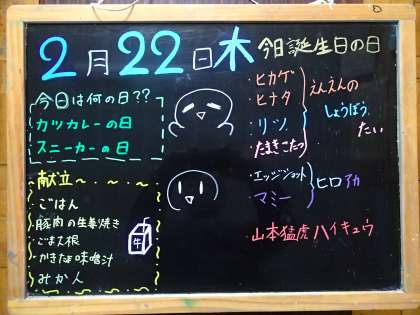 2月22日木
今日は何の日??
カツカレーの日
スニーカーの日
献立～～～
ごはん
豚肉の生姜焼き
ごま大根
かきたま味噌汁
みかん
牛
今日誕生日の日
・ヒカゲ
・ヒナタ
・リツ
・たまきこたつ
えんえんの
しょうぼう
たい
・エッジショット
・マミー
ヒロアカ
・山本猛虎 ハイキュウ